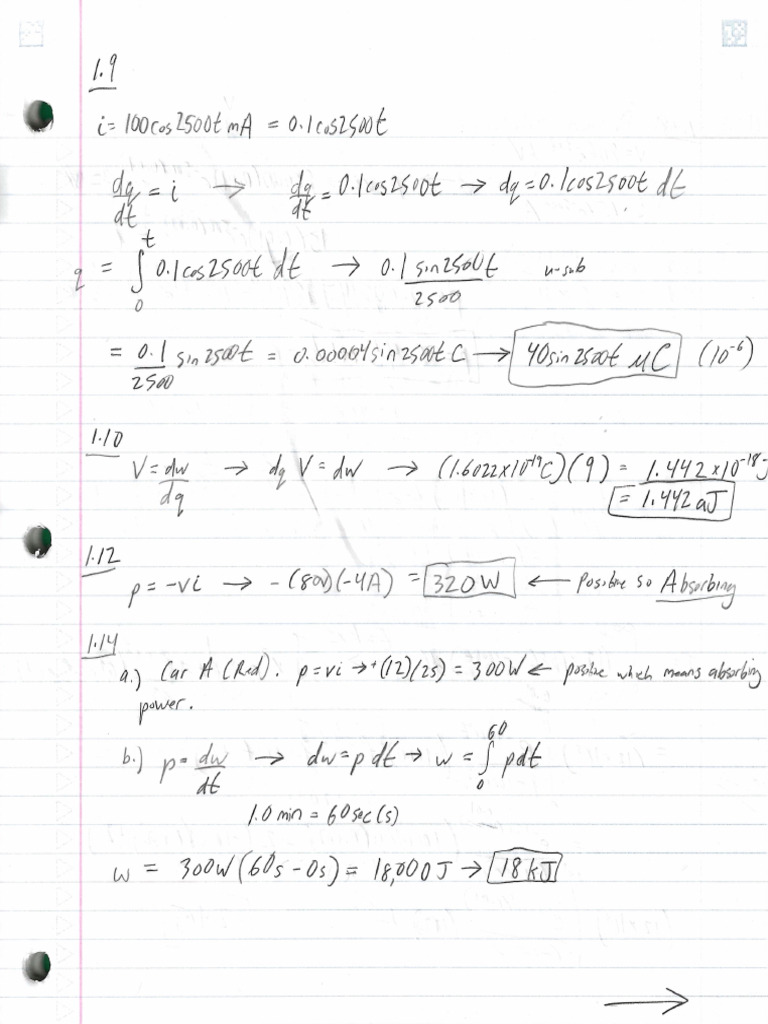 1.9
i = 100cos2500t mA = 0.1cos2500t
dq/dt = i → dq/dt = 0.1cos2500t → dq = 0.1cos2500t dt
q = ∫₀ᵗ 0.1cos2500t dt → 0.1 sin2500t/2500 u-sub
= 0.1/2500 sin2500t = 0.00004sin2500t C → 40sin2500t μC (10⁻⁶)
1.10
V = dw/dq → dq V = dw → (1.6022×10⁻¹⁹C)(9) = 1.442×10⁻¹⁸J
= 1.442 aJ
1.12
p = -vi → -(80V)(-4A) = 320W ← Positive so Absorbing
1.14
a.) Car A (Red). p = vi → +(12)(25) = 300W ← positive which means absorbing
power.
b.) p = dw/dt → dw = p dt → w = ∫₀⁶⁰ pdt
1.0 min = 60sec(s)
w = 300W(60s - 0s) = 18,000J → 18kJ
→